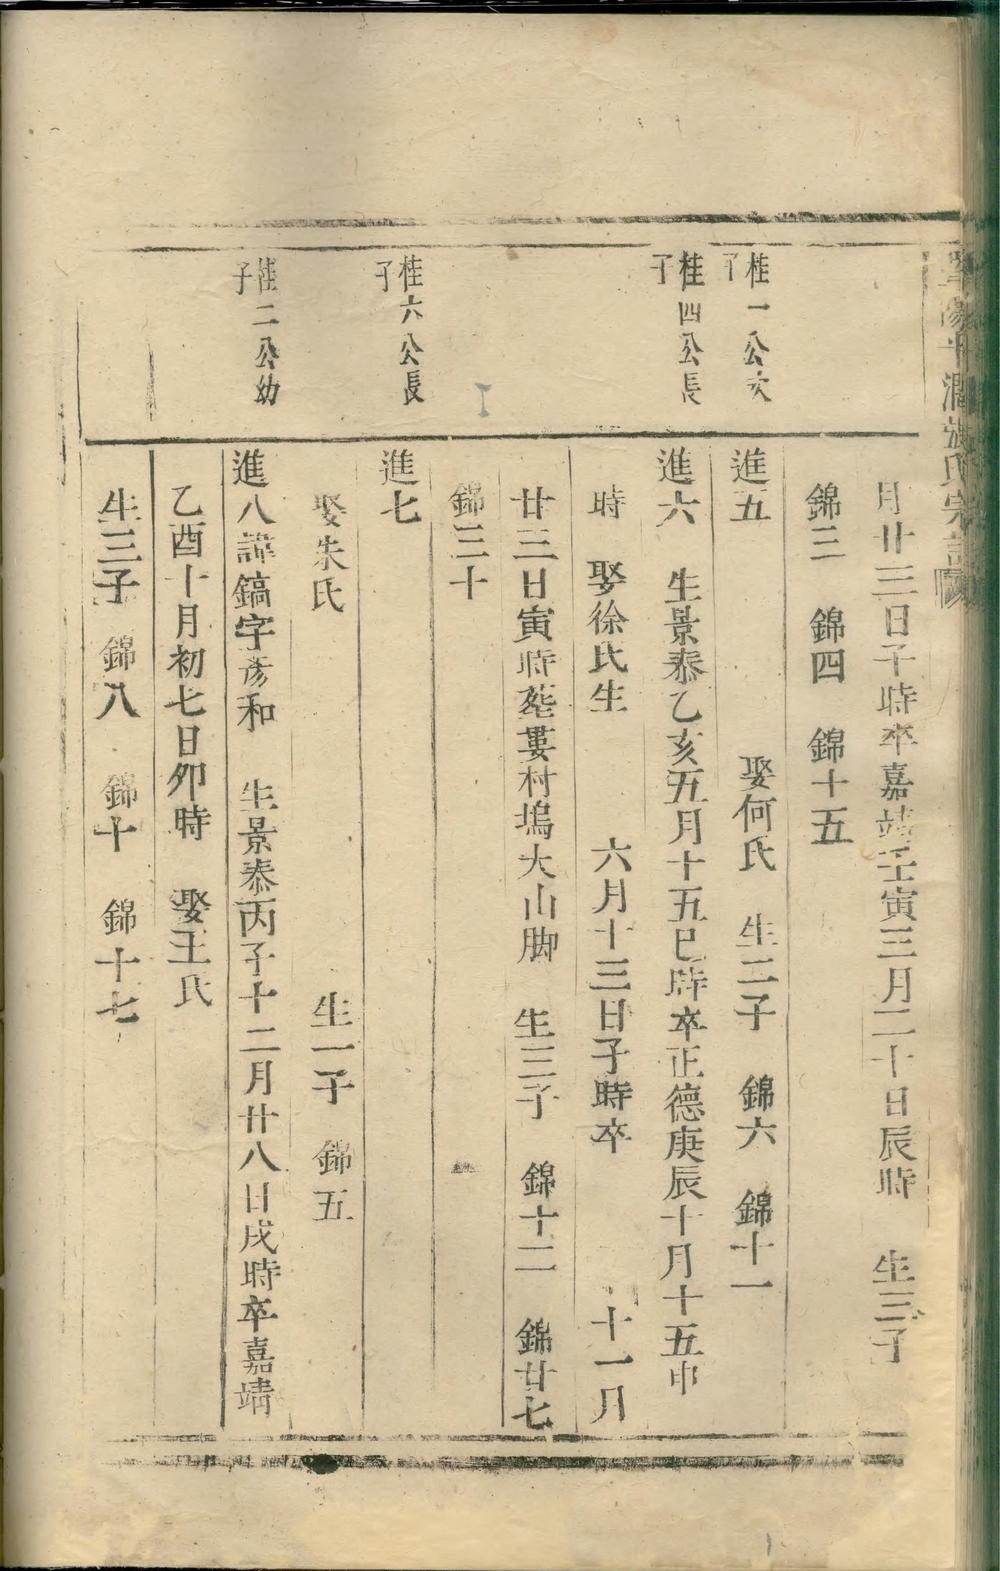 月廿三日子時卒嘉靖壬寅三月二十日辰時 生三子
錦三 錦四 錦十五
桂一公次
子
進五 娶何氏 生二子 錦六 錦十一
桂四公長
子
進六 生景泰乙亥五月十五巳時卒正德庚辰十月十五申
時 娶徐氏生 六月十三日子時卒 十一月
廿三日寅時葬婁村塢大山脚 生三子 錦十二 錦廿七
錦三十
桂六公長
子
進七
娶朱氏 生一子 錦五
桂二公幼
子
進八諱鎬字彥和 生景泰丙子十二月廿八日戌時卒嘉靖
乙酉十月初七日卯時 娶王氏
生三子 錦八 錦十 錦十七